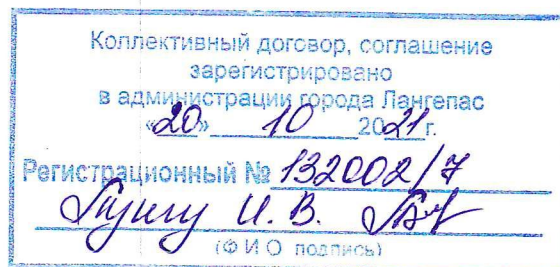 Коллективный договор, соглашение
зарегистрировано
в администрации города Лангепас
«20» 10 2021 г.
Регистрационный № 132002/7
И. В.
(Ф И О подпись)